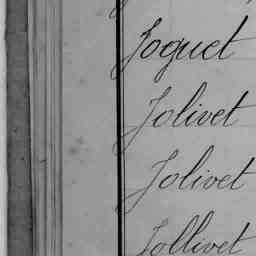 Joguet
Jolivet
Jolivet
Jollivet